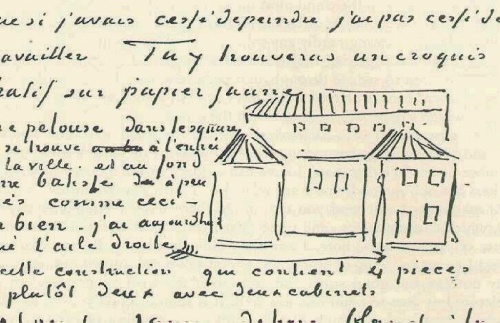 si j'avais cessé depeindre j'ai pas cessé de
availler Tu y trouveras un croquis
ratif sur papier jaune
e pelouse dans lesquare
se trouve à l'entrée
la ville. et au fond
re batisse de à peu
és comme ceci -
bien. j'ai aujourdhui
l'aile droite
cette construction qui contient 4 pieces
plutôt deux avec deux cabinets